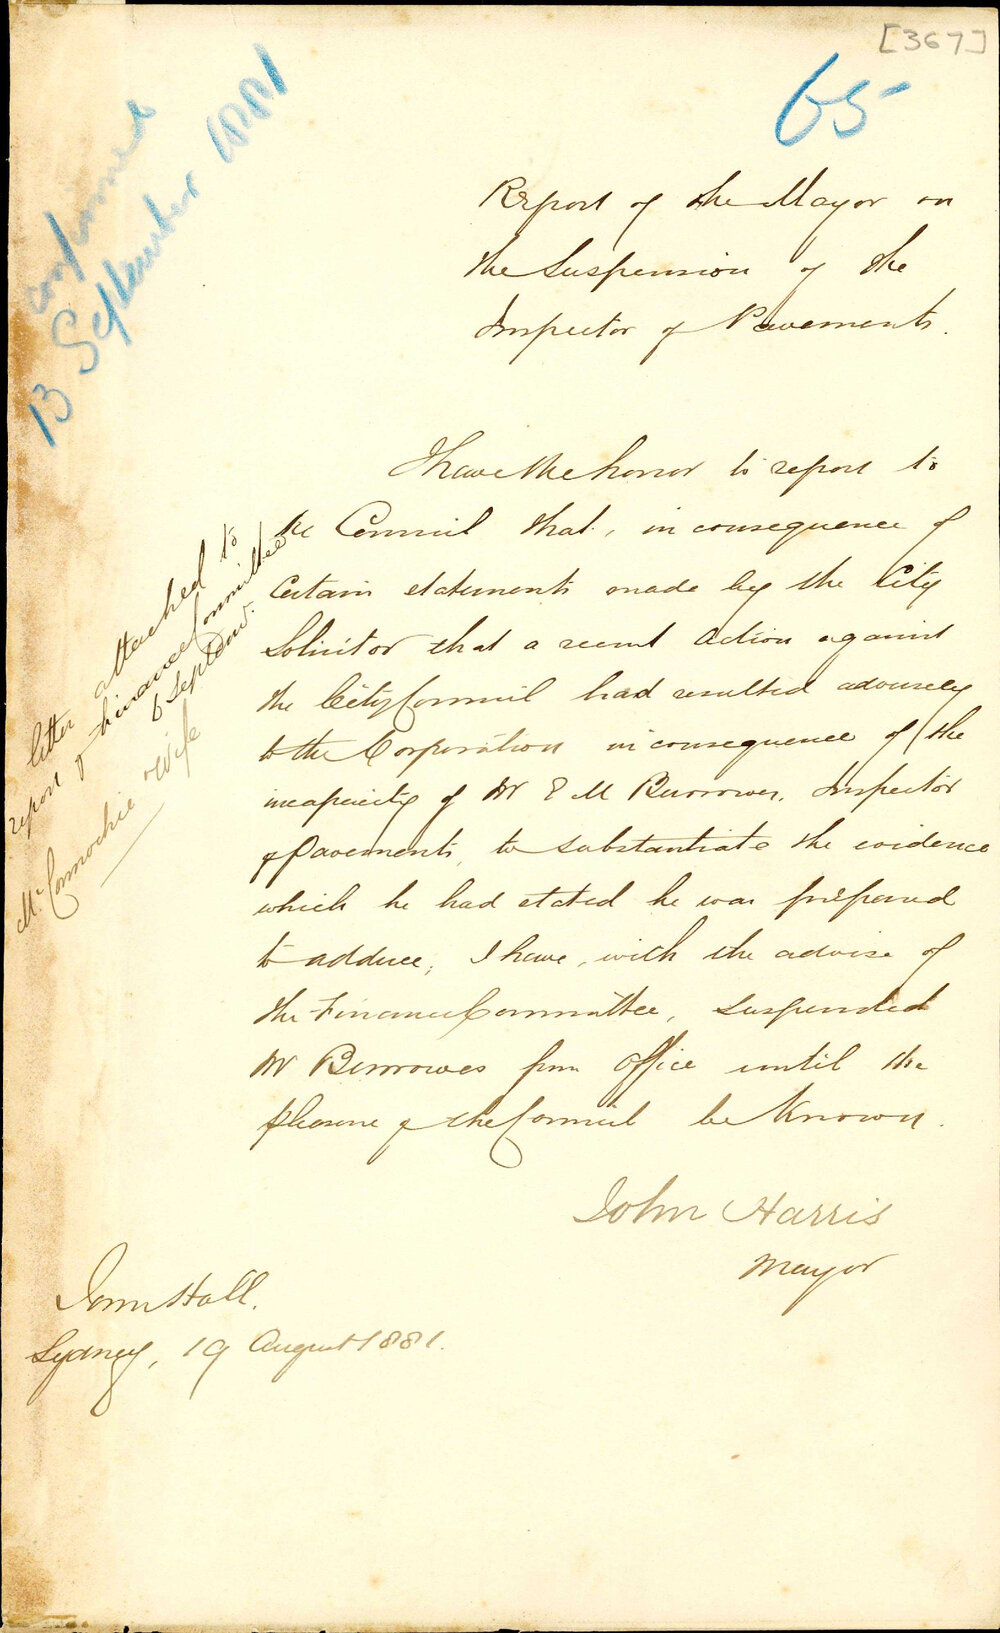 [367]
65
confirmed
13 September 1881
Report of the Mayor on
the Suspension of the
Inspector of Pavements.
I have the honor to report to
the Council that, in consequence of
Certain statements made by the City
Solicitor that a recent action against
the City Council had resulted adversely
to the Corporation in consequence of the
incapacity of Mr E M Burrowes, Inspector
of Pavements, to substantiate the evidence
which he had stated he was prepared
to adduce, I have, with the advise of
the Finance Committee, suspended
Mr Burrowes from Office until the
pleasure of the Council be Known.
John Harris
Mayor
Town Hall.
Sydney, 19 August 1881.
letter attached to
report of Finance Committee
6 Septem.
McConnochie & Wife